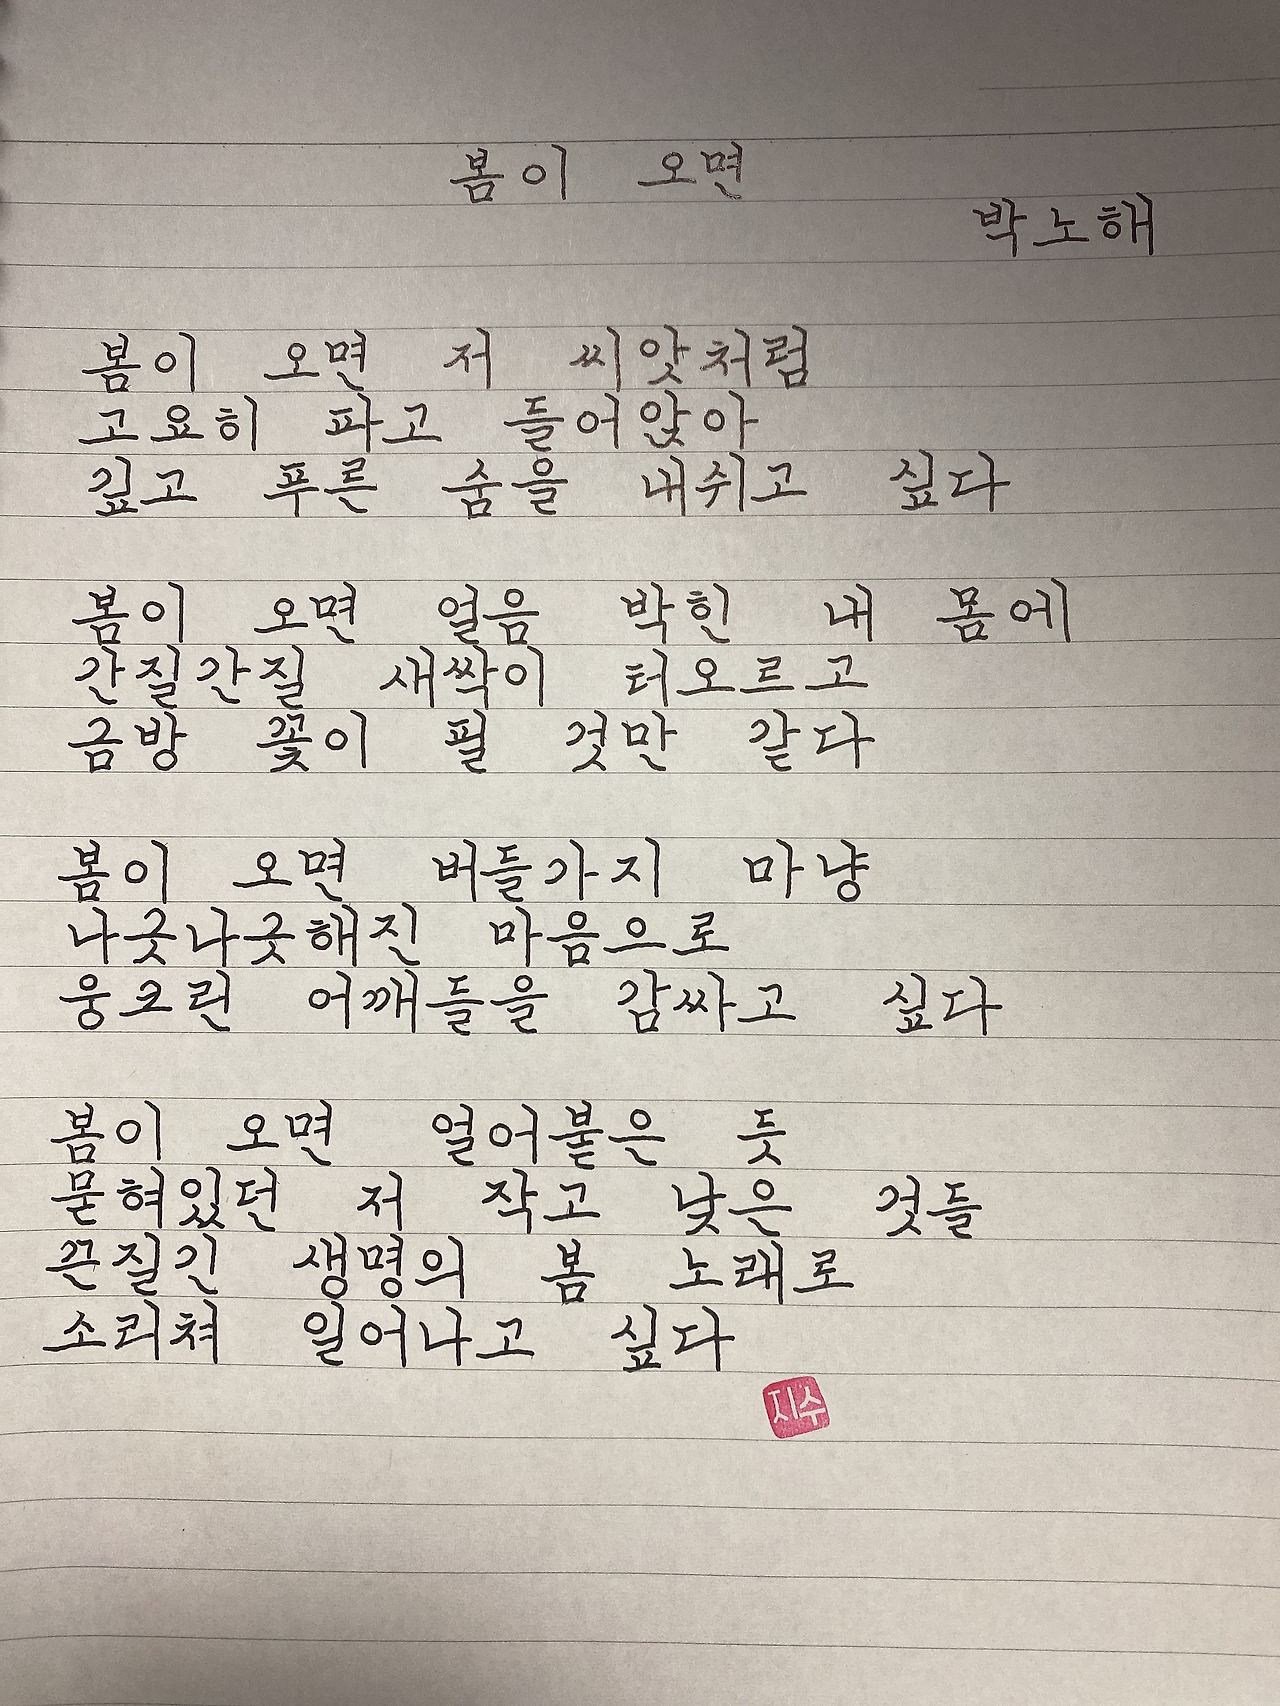 봄이 오면
박노해
봄이 오면 저 씨앗처럼
고요히 파고 들어앉아
깊고 푸른 숨을 내쉬고 싶다
봄이 오면 얼음 박힌 내 몸에
간질간질 새싹이 터오르고
금방 꽃이 필 것만 같다
봄이 오면 버들가지 마냥
나긋나긋해진 마음으로
웅크린 어깨들을 감싸고 싶다
봄이 오면 얼어붙은 듯
묻혀있던 저 작고 낮은 것들
끈질긴 생명의 봄 노래로
소리쳐 일어나고 싶다
지수